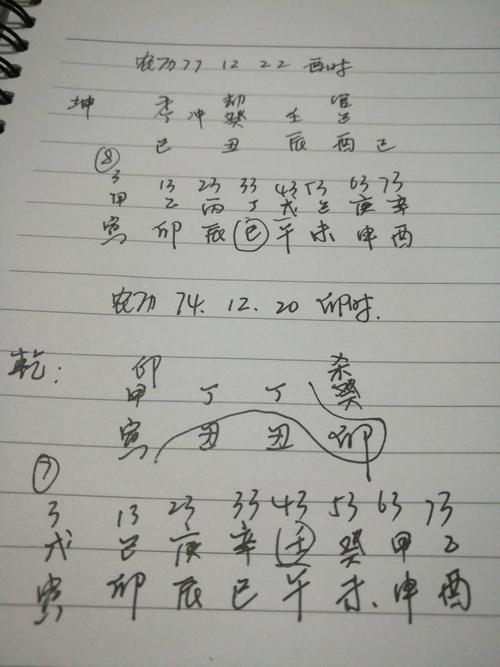 农历77 12 22 酉时
坤 劫 官
冲 癸 壬 己
巳 丑 辰 酉
⑧
3 13 23 33 43 53 63 73
甲 乙 丙 丁 戊 己 庚 辛
寅 卯 辰 巳 午 未 申 酉
农历 74.12.20 卯时.
乾: 卯 杀
甲 丁 丁 癸
寅 丑 丑 卯
⑦
3 13 23 33 43 53 63 73
戊 己 庚 辛 壬 癸 甲 乙
寅 卯 辰 巳 午 未. 申 酉